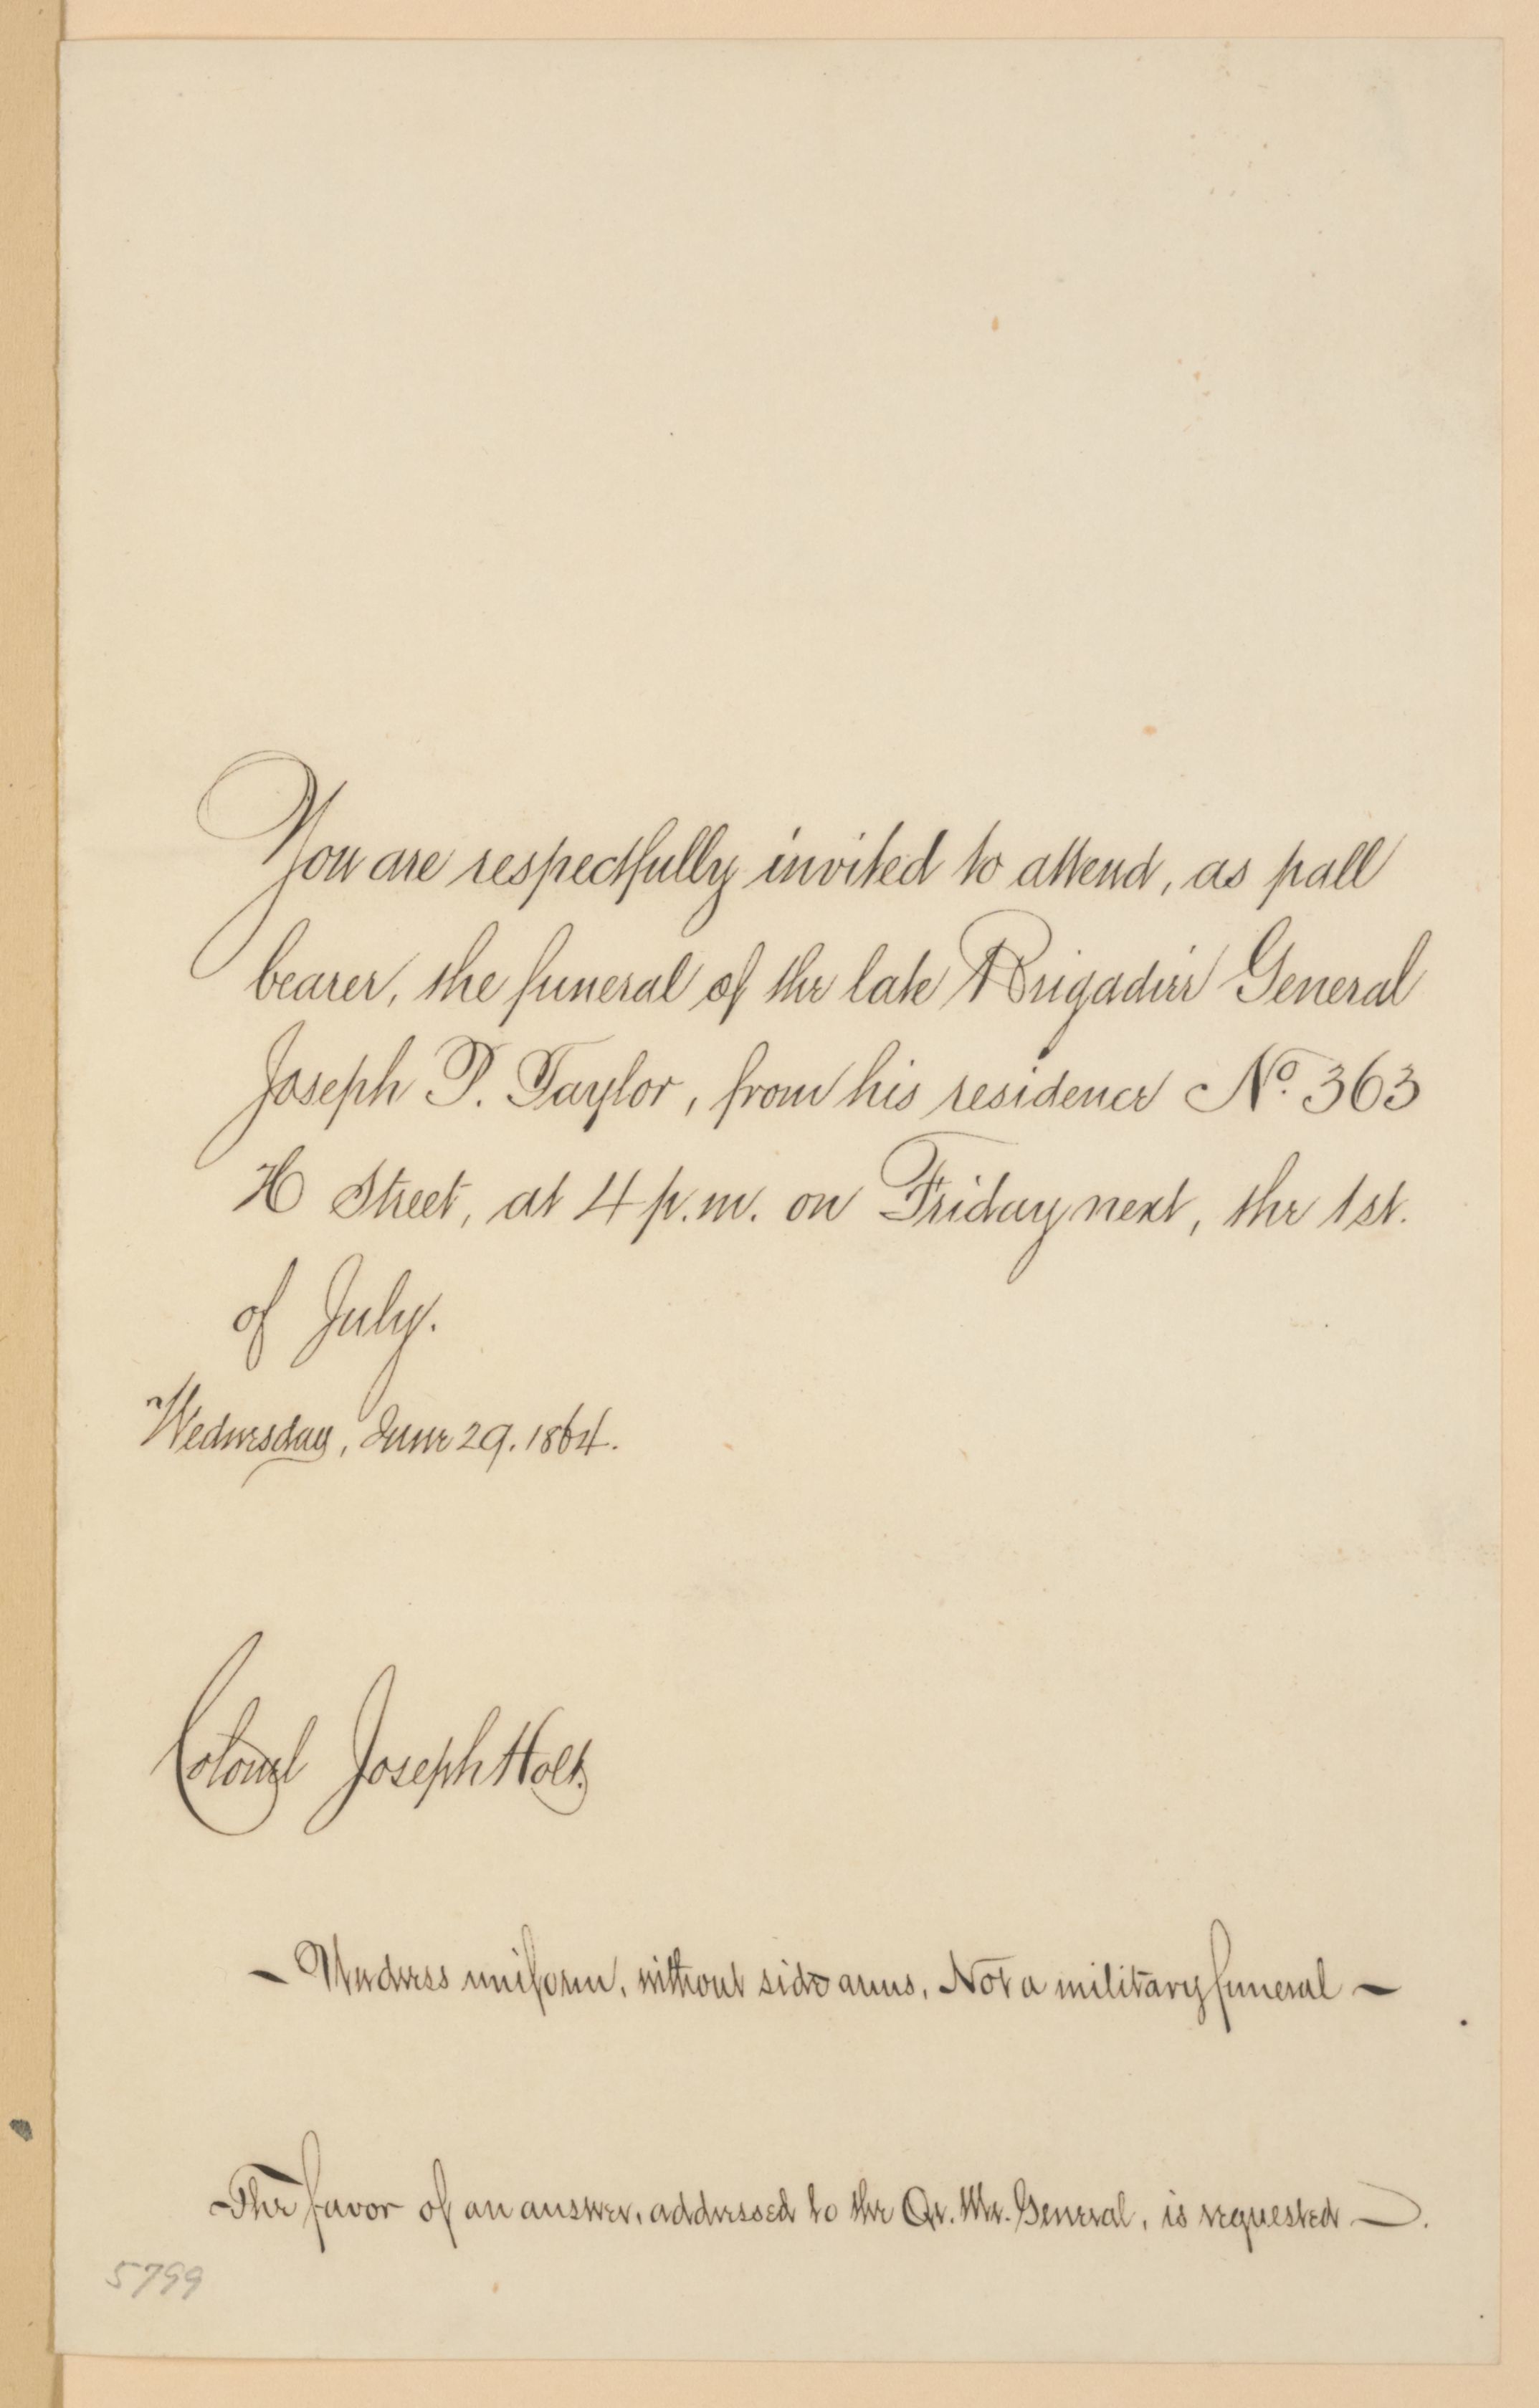 You are respectfully invited to attend, as pall
bearer, the funeral of the late Brigadier General
Joseph P. Taylor, from his residence No. 363
H Street, at 4 p.m. on Friday next, the 1st.
of July.
Wednesday, June 29. 1864.
Colonel Joseph Holt.
- Undress uniform, without side arms, Not a military funeral -
- The favor of an answer, addressed to the Qr. Mr. General, is requested -.
5799